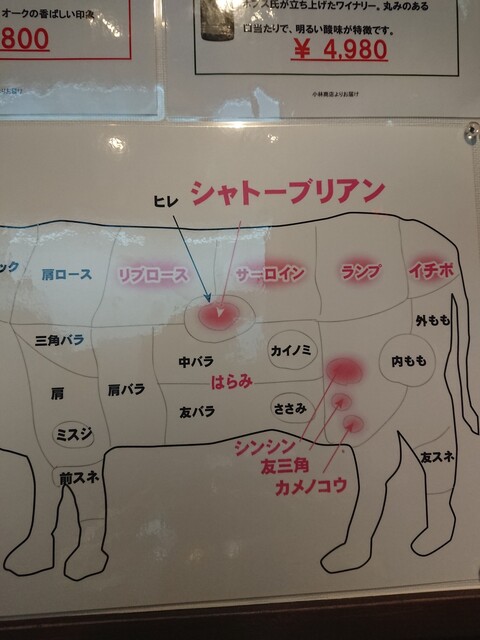 オークの香ばしい印象
800
ホンス氏が立ち上げたワイナリー。丸みのある
口当たりで、明るい酸味が特徴です。
¥ 4,980
小林商店よりお届け
シャトーブリアン
ヒレ
ック
肩ロース
リブロース
サーロイン
ランプ
イチボ
三角バラ
外もも
中バラ
カイノミ
内もも
はらみ
肩
肩バラ
友バラ
ささみ
ミスジ
シンシン
友三角
カメノコウ
前スネ
友スネ